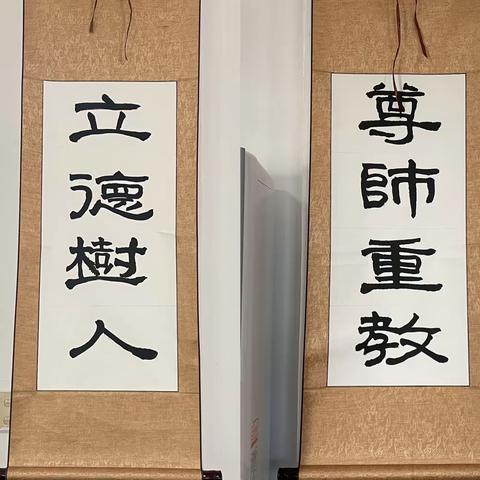 尊師重教
立德樹人